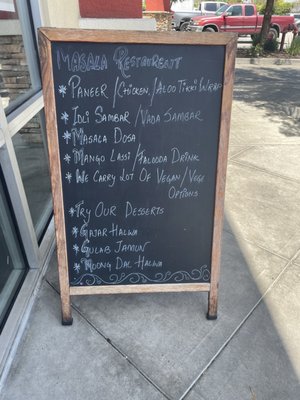 Masala Restaurant
* Paneer/Chicken/Aloo Tikki Wrap
* Idli Sambar/Vada Sambar
* Masala Dosa
* Mango Lassi/Falooda Drink
* We Carry Lot Of Vegan/Vege
Options
* Try Our Desserts
* Gajar Halwa
* Gulab Jamun
* Moong Dal Halwa